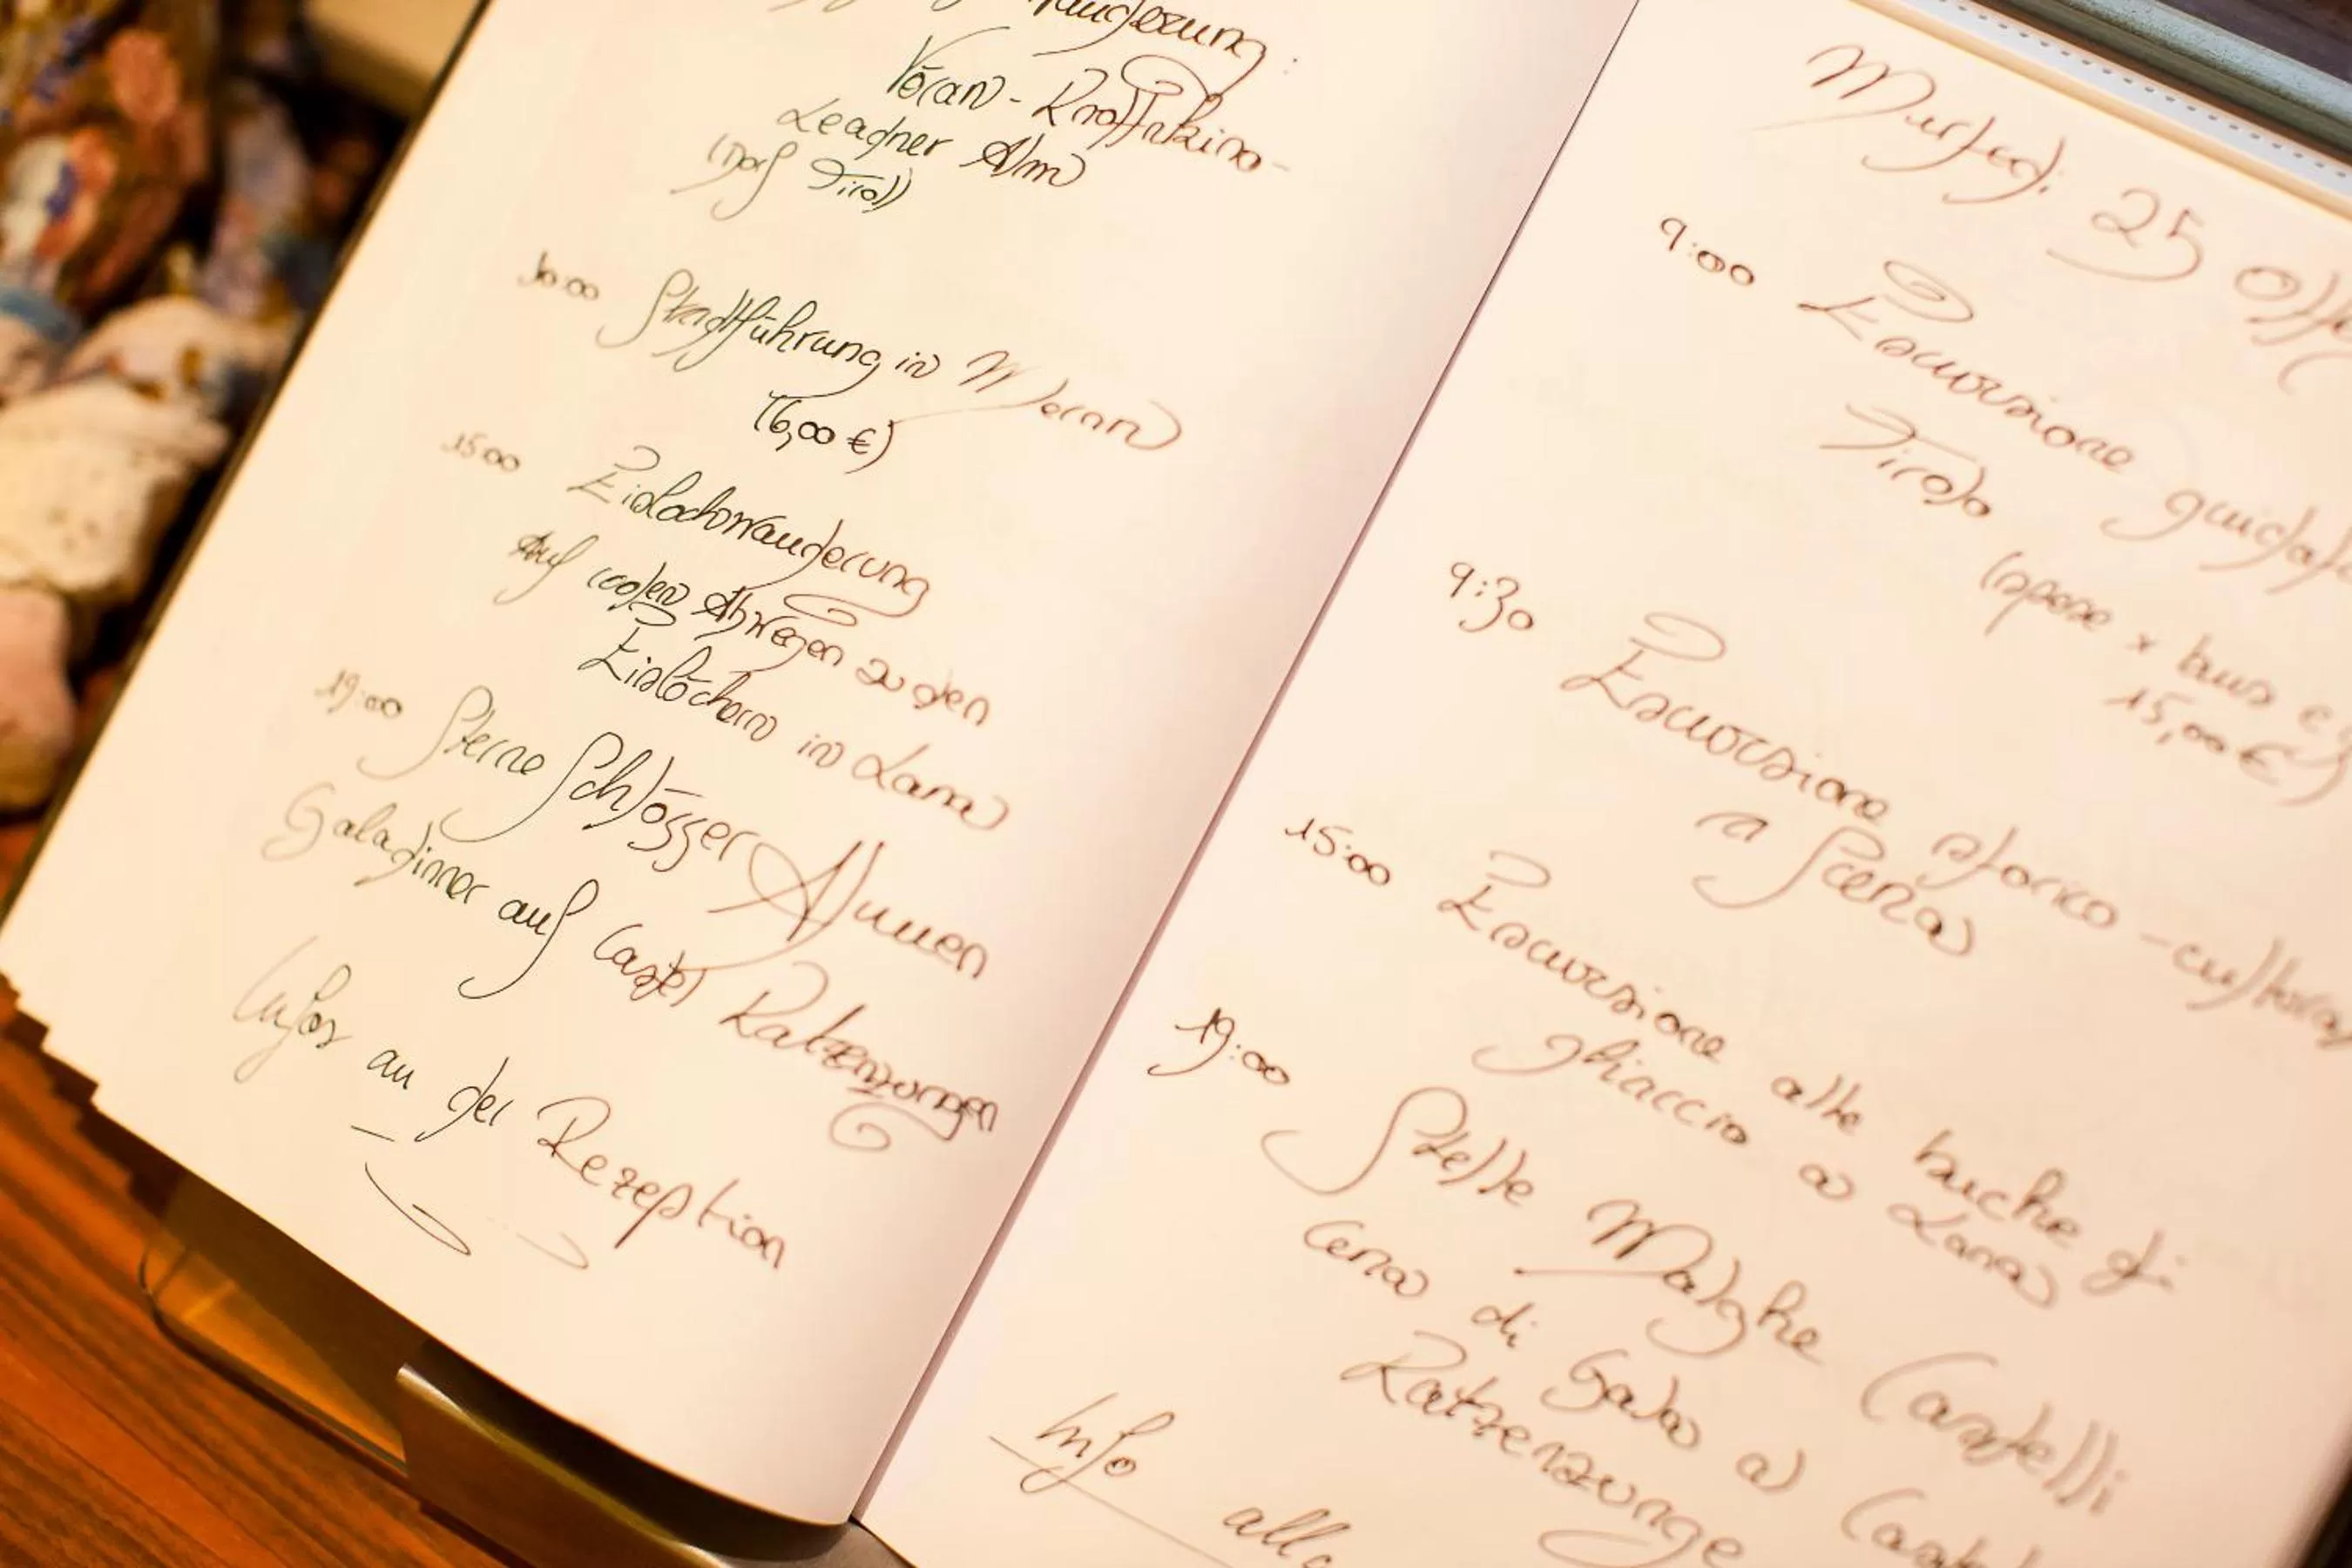 Vöran - Knottnkino-
Leadner Alm
(Dorf Tirol)
10:00 Stadtführung in Meran
(6,00 €)
15:00 Eislochwanderung
Auf coolen Abwegen zu den
Eislöchern in Lana
19:00 Sterne Schlösser Almen
Galadinner auf Castel Katzenzungen
Infos an der Rezeption
25
9:00 Escursione
Tirolo
(spese x bus e
15,00 €)
9:30 Escursione storico-cultural
a Scena
15:00 Escursione alle buche di
ghiaccio a Lana
19:00 Stelle Malghe Castelli
Cena di Gala a
Katzenzunge
Info